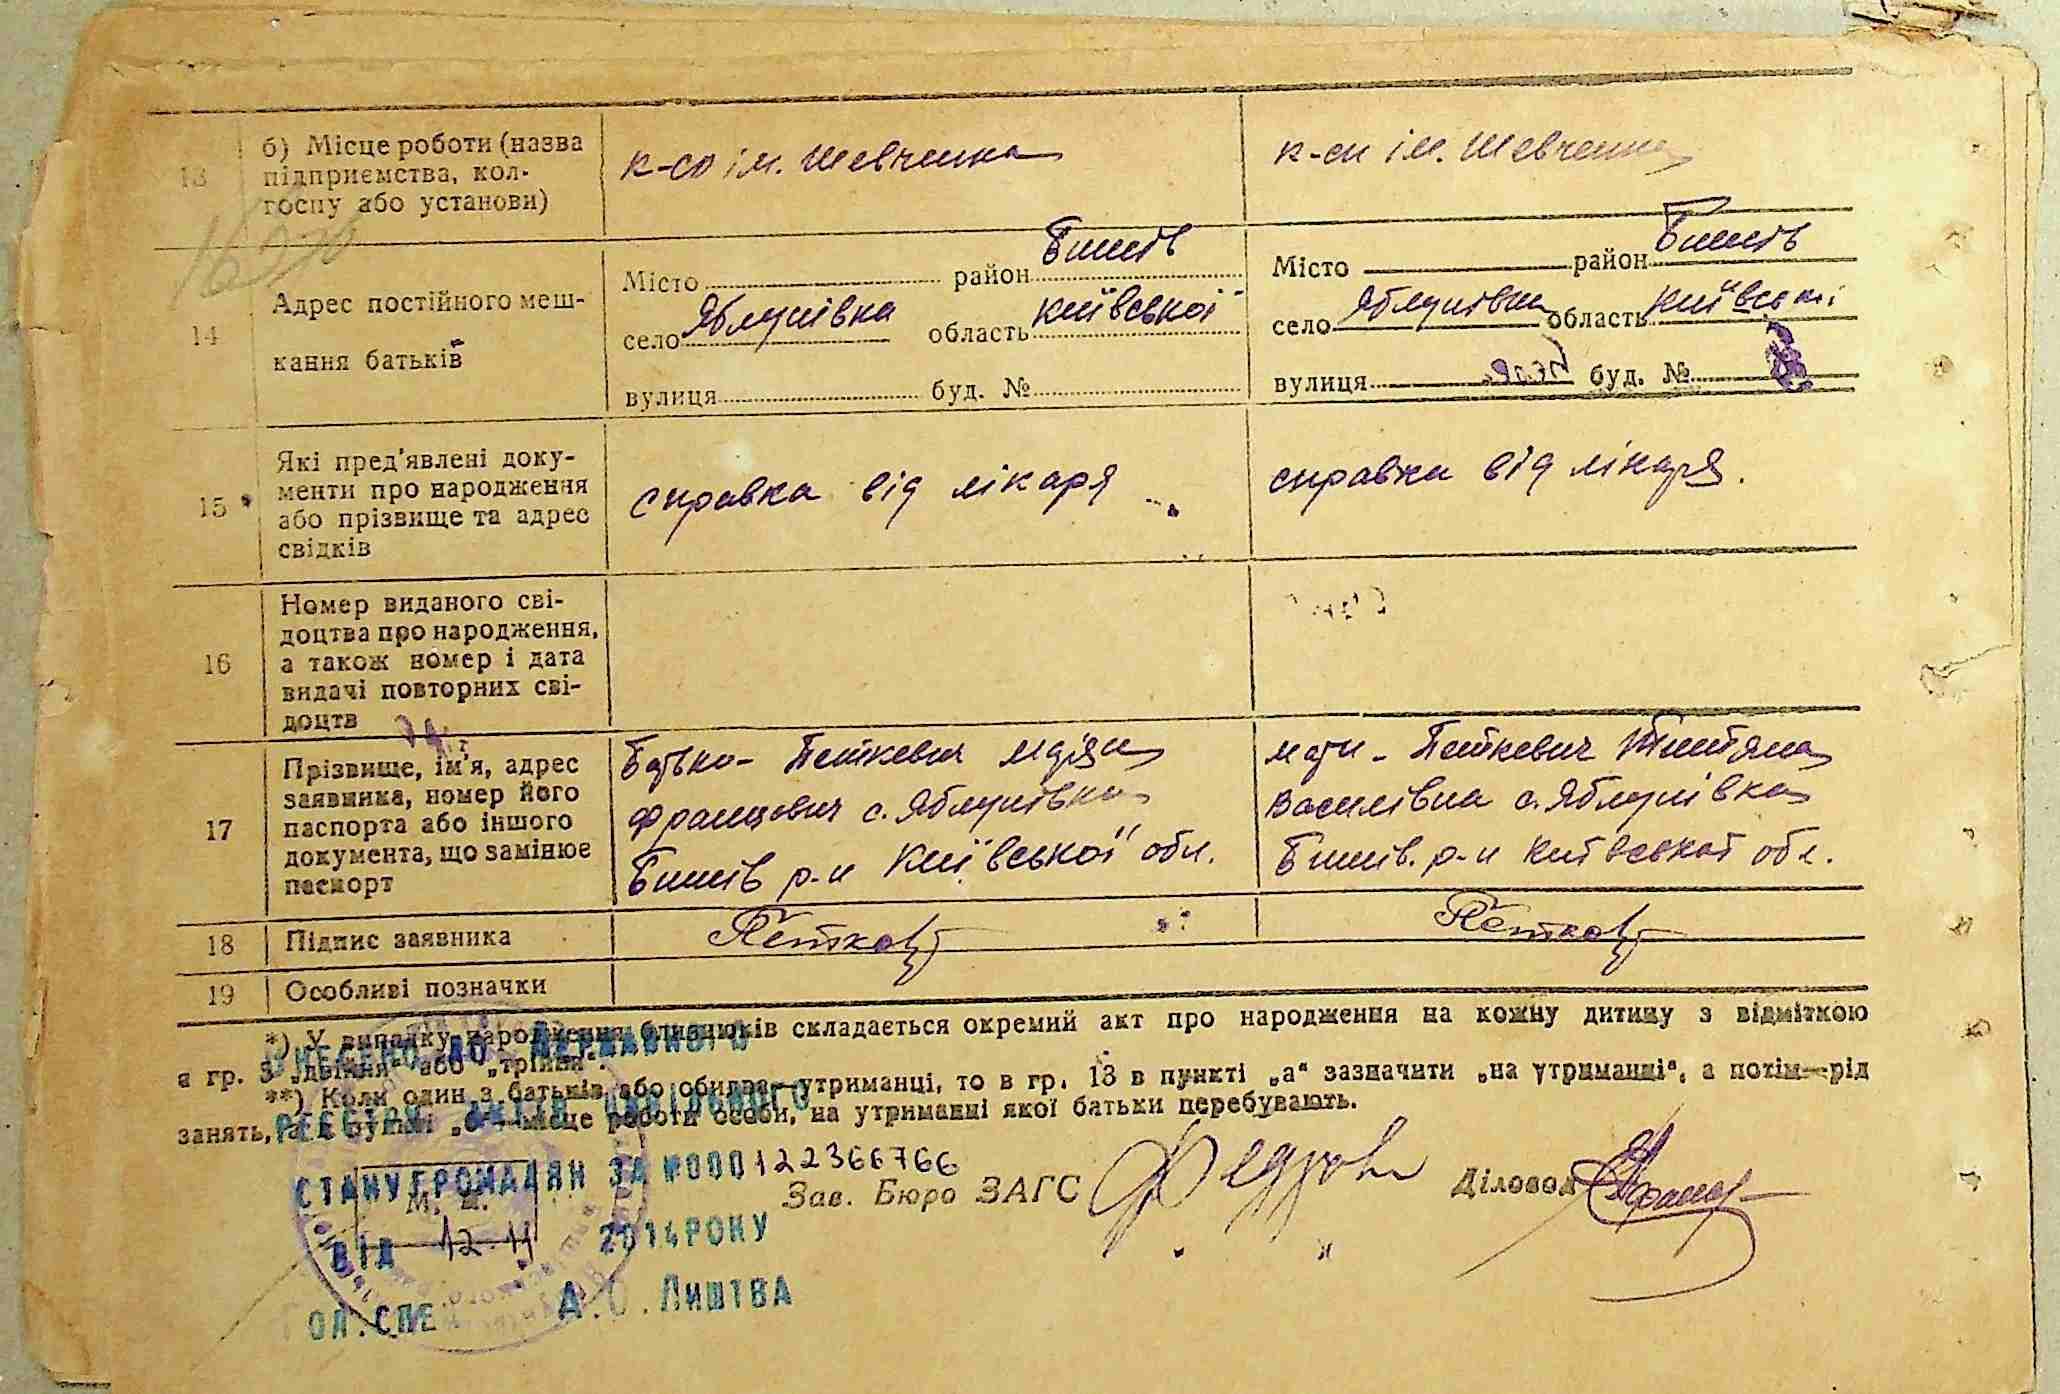 13 б) Місце роботи (назва
підприємства, кол-
госпу або установи)
к-сп ім. Шевченка
к-сп ім. Шевченка
14 Адрес постійного меш-
кання батьків
Місто район Бишів
село Яблунівка область Київської
вулиця буд. №
Місто район Бишів
село Яблунівка область Київські
вулиця буд. №
15 Які пред'явлені доку-
менти про народження
або прізвище та адрес
свідків
справка від лікаря
справка від лікаря.
16 Номер виданого сві-
доцтва про народження,
а також номер і дата
видачі повторних сві-
доцтв
17 Прізвище, ім'я, адрес
заявника, номер його
паспорта або іншого
документа, що замінює
паспорт
Батько - Петкевич
Францович с. Яблунівка
Бишів р-н Київської обл.
мати - Петкевич Тетяна
Василівна с. Яблунівка
Бишів. р-н Київської обл.
18 Підпис заявника
19 Особливі позначки
*) У випадку народження близнюків складається окремий акт про народження на кожну дитину з відміткою
в гр. 3 „двійня" або „трійня".
**) Коли один з батьків або обидва—утриманці, то в гр. 13 в пункті „а" зазначити „на утриманні", а потім—рід
занять, а в пункті „б"—місце роботи особи, на утриманні якої батьки перебувають.
ВНЕСЕНО ДО ДЕРЖАВНОГО
РЕЄСТРУ АКТІВ ЦИВІЛЬНОГО
СТАНУ ГРОМАДЯН ЗА №000122366766
М. П.
Зав. Бюро ЗАГС
Діловод
ВІД 12.11 2014РОКУ
ГОЛ.СПЕЦ А.О.ЛИШТВА